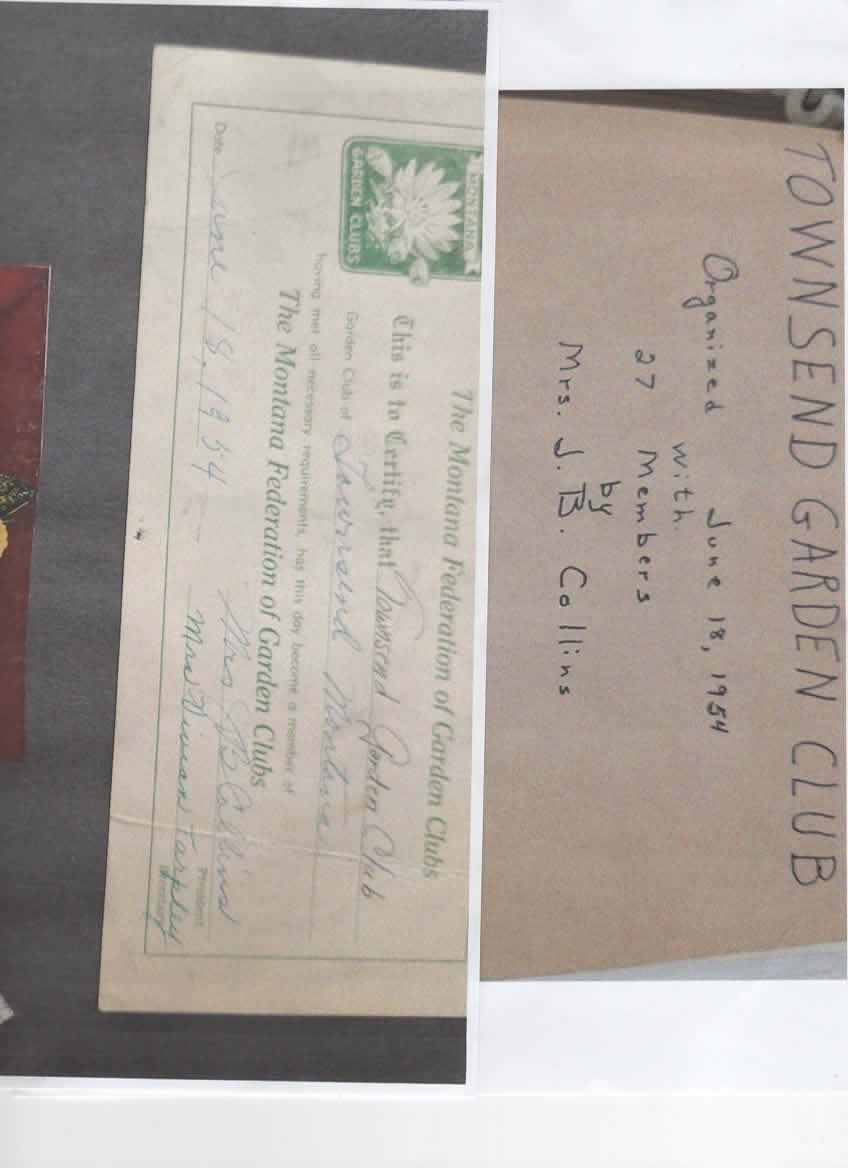 TOWNSEND GARDEN CLUB
Organized June 18, 1954
with
27 Members
by
Mrs. J. B. Collins
The Montana Federation of Garden Clubs
MONTANA
GARDEN CLUBS
This is to Certify, that Townsend Garden Club
Garden Club of Townsend Montana
having met all necessary requirements, has this day become a member of
The Montana Federation of Garden Clubs
Date June 18, 1954
Mrs JB Collins
President
Mrs Vivian Tarpley
Secretary